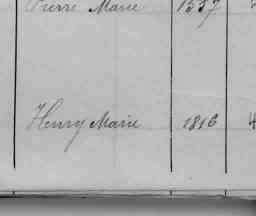 Pierre Marie 1857
Henry Marie 1816 4